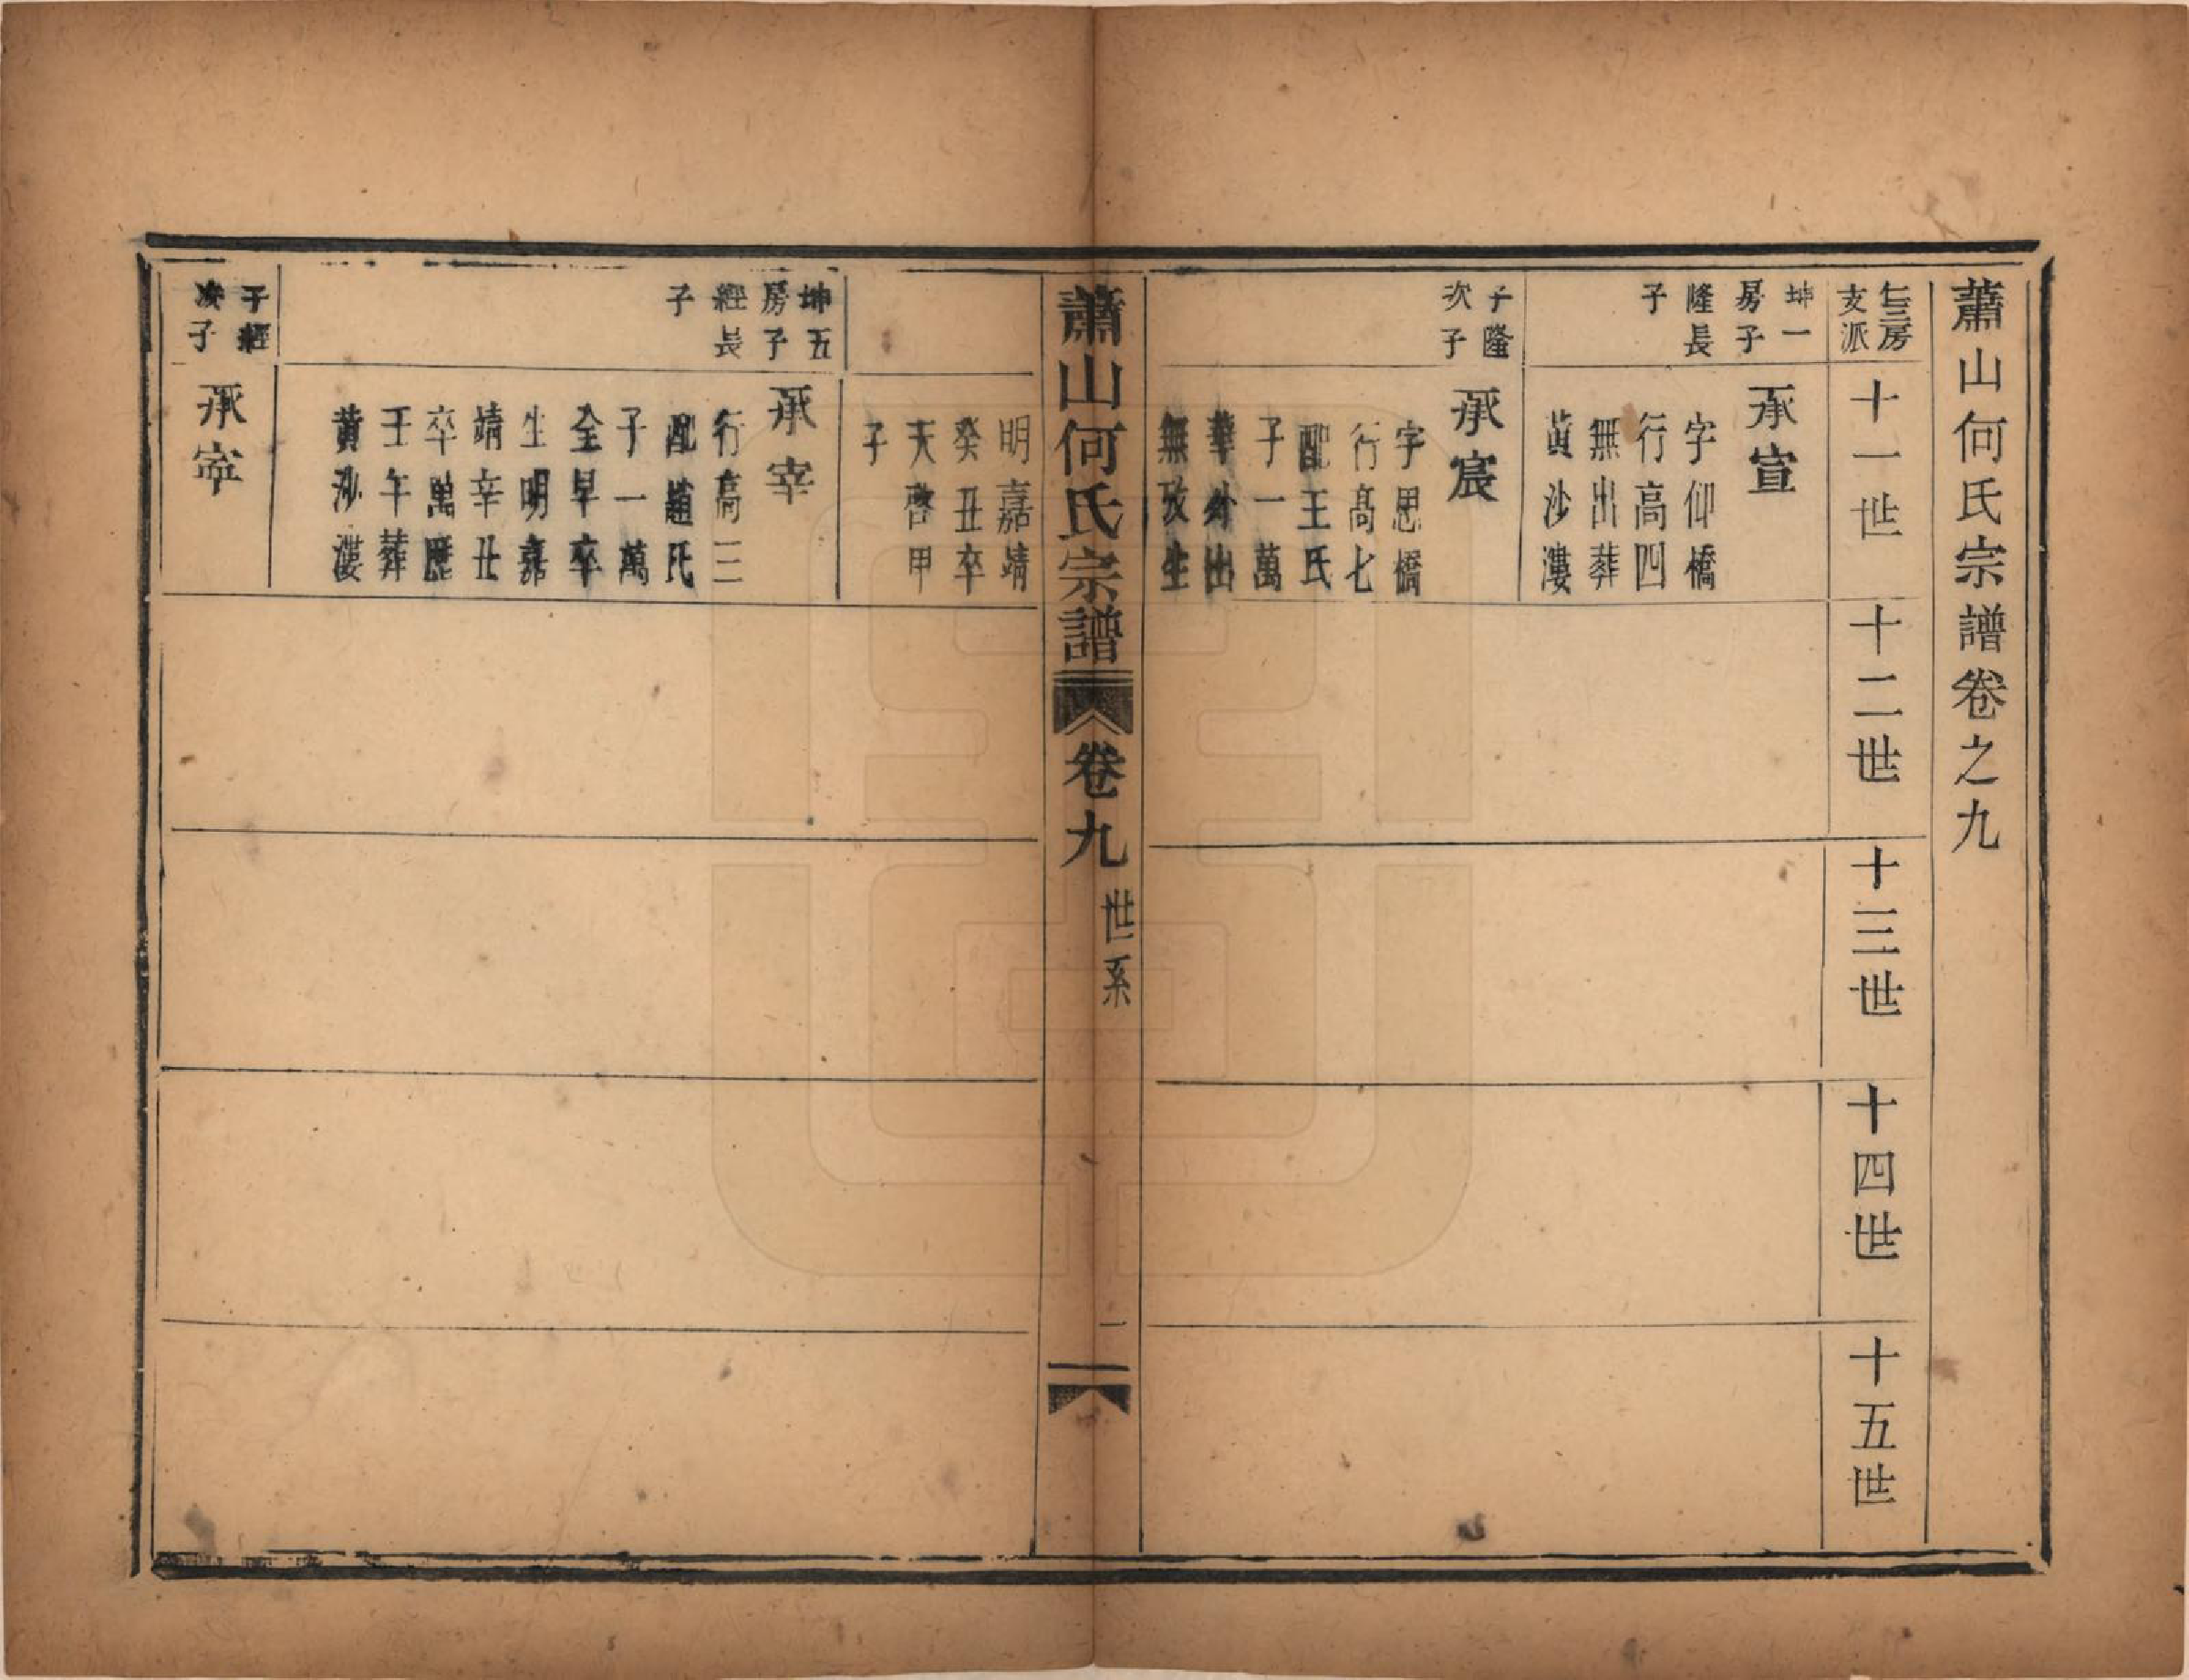 蕭山何氏宗譜卷之九
仁三房
支派
十一世
十二世
十三世
十四世
十五世
坤一
房子
隆長
子
承宣
字仰橋
行高四
無出葬
黃沙漊
子隆
次子
承宸
字思橋
行高七
配王氏
子一萬
華外出
無攷生
蕭山何氏宗譜
卷九
世系
一
明嘉靖
癸丑卒
天啓甲
子
坤五
房子
經長
子
承宰
行高三
配趙氏
子一萬
全早卒
生明嘉
靖辛丑
卒萬歷
壬午葬
黃沙漊
子經
次子
承寧